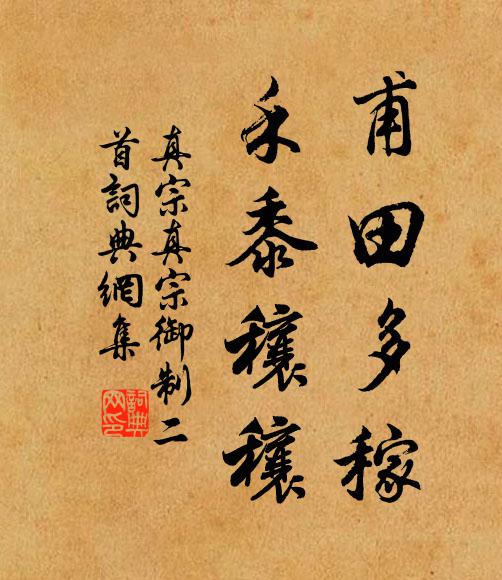 甫田多稼
禾黍穰穰
真宗真宗御制二
首詞典網集
詞典
网印